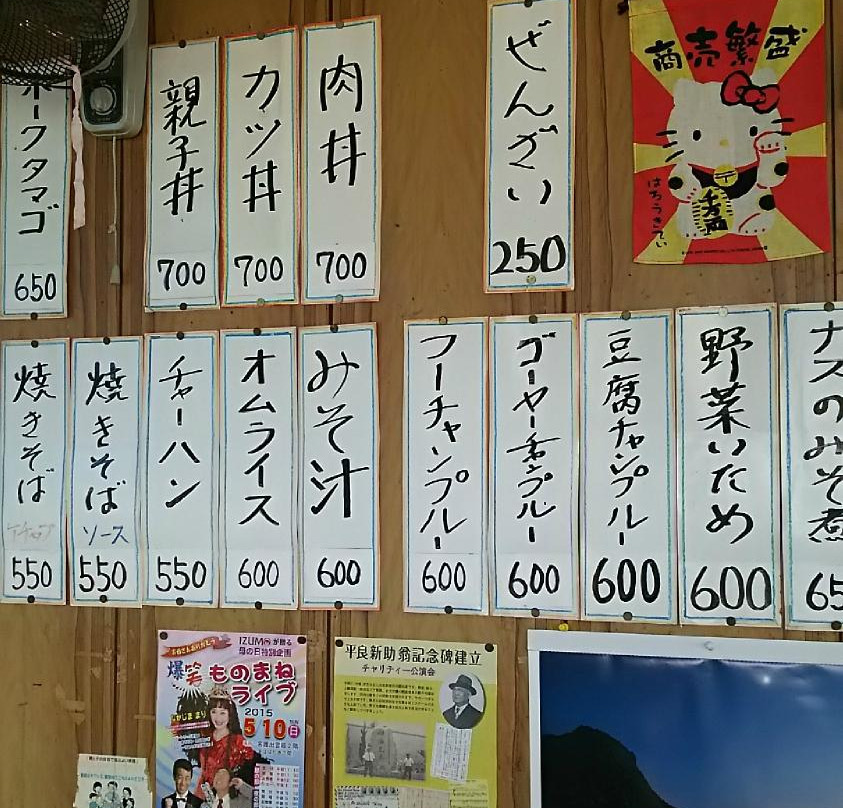 ポークタマゴ
650
親子丼
700
カツ丼
700
肉丼
700
ぜんざい
250
商売繁盛
はちうきてい
千万両
焼きそば
ケチャップ
550
焼きそば
ソース
550
チャーハン
550
オムライス
600
みそ汁
600
フーチャンプルー
600
ゴーヤーチャンプルー
600
豆腐チャンプルー
600
野菜いため
600
ナスのみそ煮
65
IZUMOが贈る
母の日特別企画
爆笑
ものまね
ライブ
2015
5 10 日
平良新助翁記念碑建立
チャリティー公演会